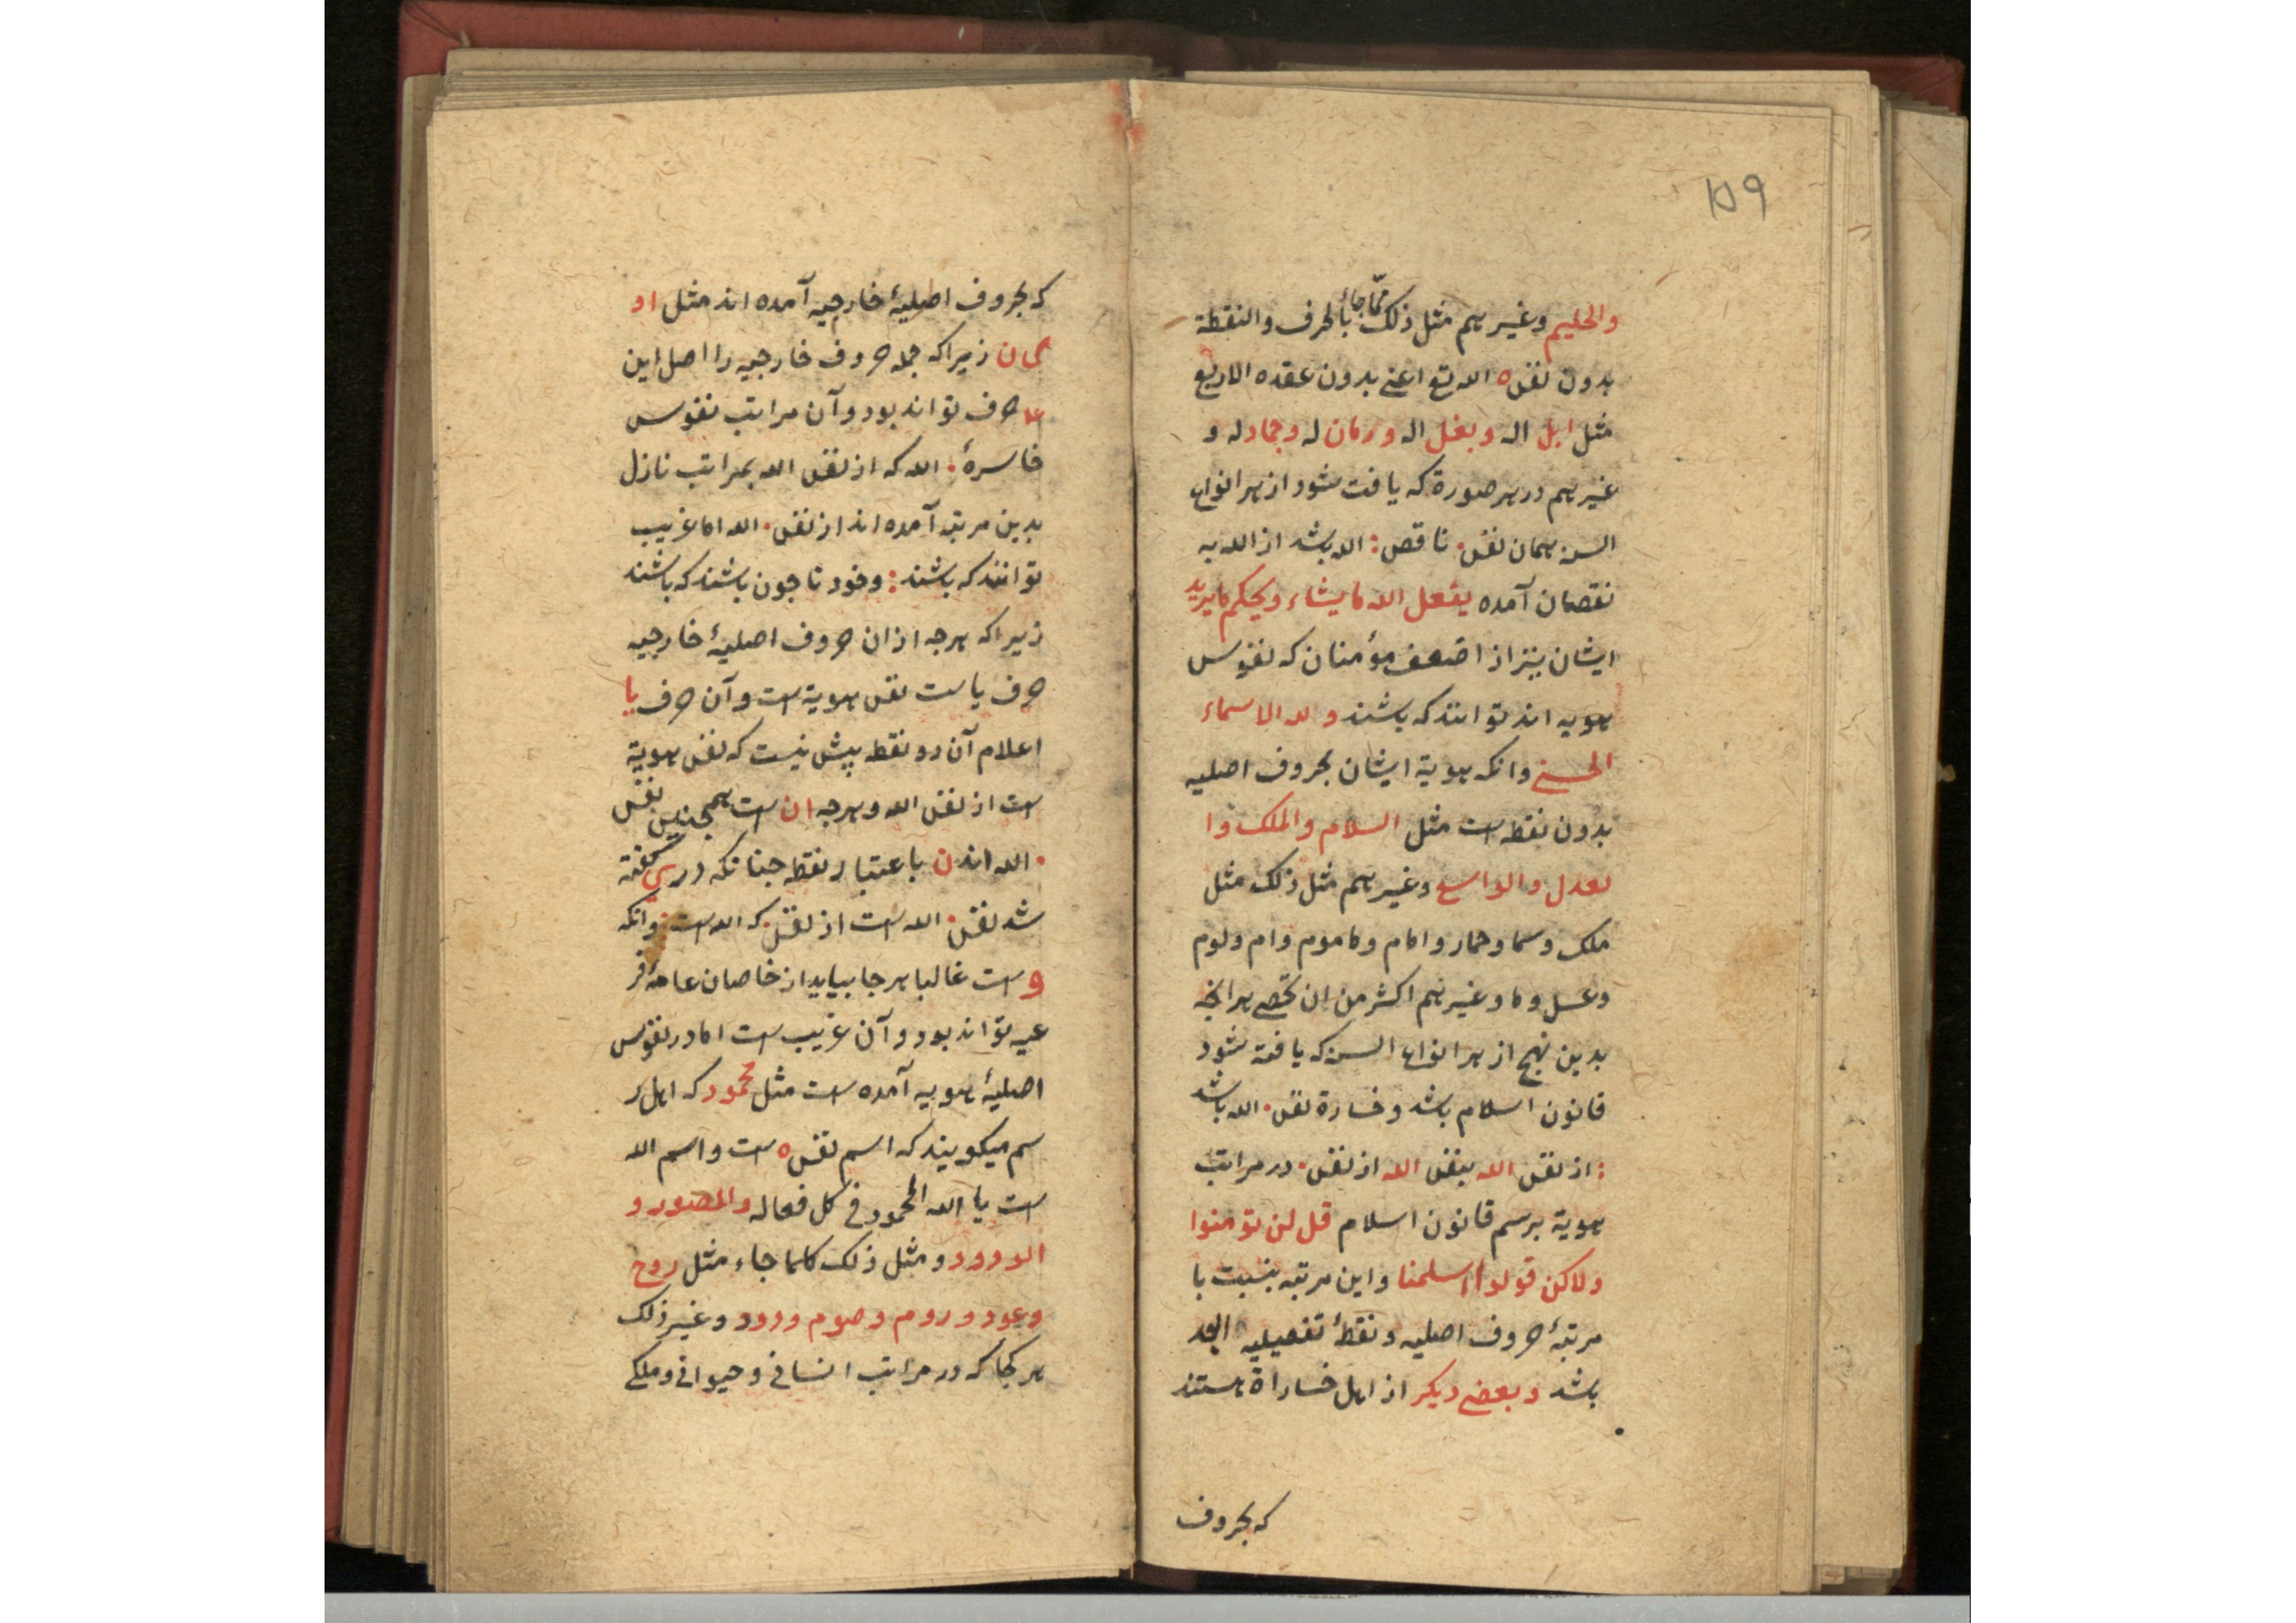 ۱۵۹
والحلیم وغیرہم مثل ذلک مما جاء بالحرف والنقطة
بدون نفس ه الله تع اعنے بدون عقده الاربع
مثل ابل اله وبغل اله ورمان له وجماد له و
غیرہم در ہر صورة که یافت شود از ہر انواع
السن ہمان نفس . ناقص : الله باشد از الله به
نقصان آمده یفعل الله ما یشاء ویحکم ما یرید
ایشان نیز از اضعف مؤمنان که نفوس
ہویه اند توانند که باشند ولله الاسماء
الحسنے وانکه ہویة ایشان بحروف اصلیه
بدون نقطه است مثل السلام والملک وا
لعدل والواسع وغیرہم مثل ذلک مثل
ملک وسما وحمار وامام وماموم وام ولوم
وعسل وما وغیرہم اکثر من ان تحصے ہر انچه
بدین نهج از ہر انواع السن که یافته شود
قانون اسلام باشد وخسارة نفس . الله باشد
: از نفس الله بنفس الله از نفس . در مراتب
ہویة برسم قانون اسلام قل لن تومنوا
ولاکن قولوا اسلمنا واین مرتبه بنسبت با
مرتبهٔ حروف اصلیه ونقطهٔ تفصیلیه ابعد
باشد وبعضے دیگر از اہل خساراة ہستند
که بحروف
که بحروف اصلیهٔ خارجیه آمده اند مثل او
زیراکه جمله حروف خارجیه را اصل این
حرف تواند بود وآن مراتب نفوس
خاسرهٔ . الله که از نفس الله بمراتب نازل
بدین مرتبه آمده اند از نفس . الله اما غریب
توانند که باشند : وخود تا چون باشند که باشند
زیراکه ہرچه از ان حروف اصلیهٔ خارجیه
حرف یا ست نفس ہویة است وآن حرف یا
اعلام آن دو نقطه بیش نیست که نفس ہویة
است از نفس الله وہرچه ان است ہمچنین نفس
. الله اند ن باعتبار نقطه چنانکه در ی گفته
شد نفس . الله است از نفس . که الله است : وانکه
و است غالبا ہر جا بیاید از خاصان عامهٔ فر
عیه تواند بود وآن غریب است اما در نفوس
اصلیهٔ ہویه آمده است مثل محمود که اہل ر
سم میکویند که اسم نفس ه است واسم الله
است یا الله المحمود فی کل فعاله والمصور و
الودود ومثل ذلک کلما جاء مثل روح
وعود وروم وصوم ودود وغیر ذلک
ہر کجا که در مراتب انسانے وحیوانے وملکے